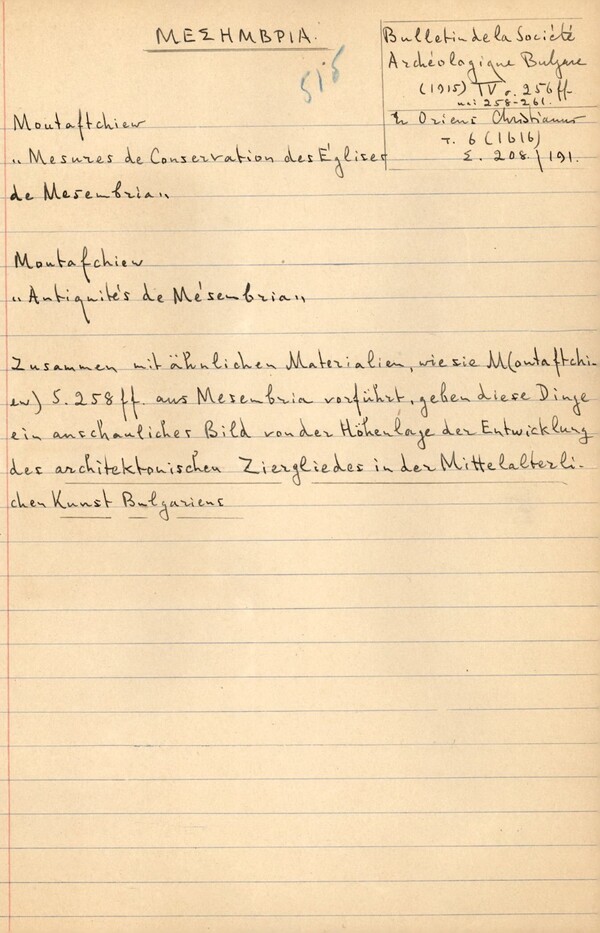 ΜΕΣΗΜΒΡΙΑ.
515
Bulletin de la Société
Archéologique Bulgare
(1915) IV σ. 256 ff.
και 258-261.
Oriens Christianus
τ. 6 (1616)
Σ. 208/191.
Moutaftchiew
„Mesures de Conservation des Églises
de Mesembria„
Moutafchiew
„Antiquités de Mésembria„
Zusammen mit ähnlichen Materialien, wie sie M(outaftchi-
ew) S. 258 ff. aus Mesembria vorführt, geben diese Dinge
ein anschauliches Bild von der Höhenlage der Entwicklung
des architektonischen Ziergliedes in der Mittelalterli-
chen Kunst Bulgariens